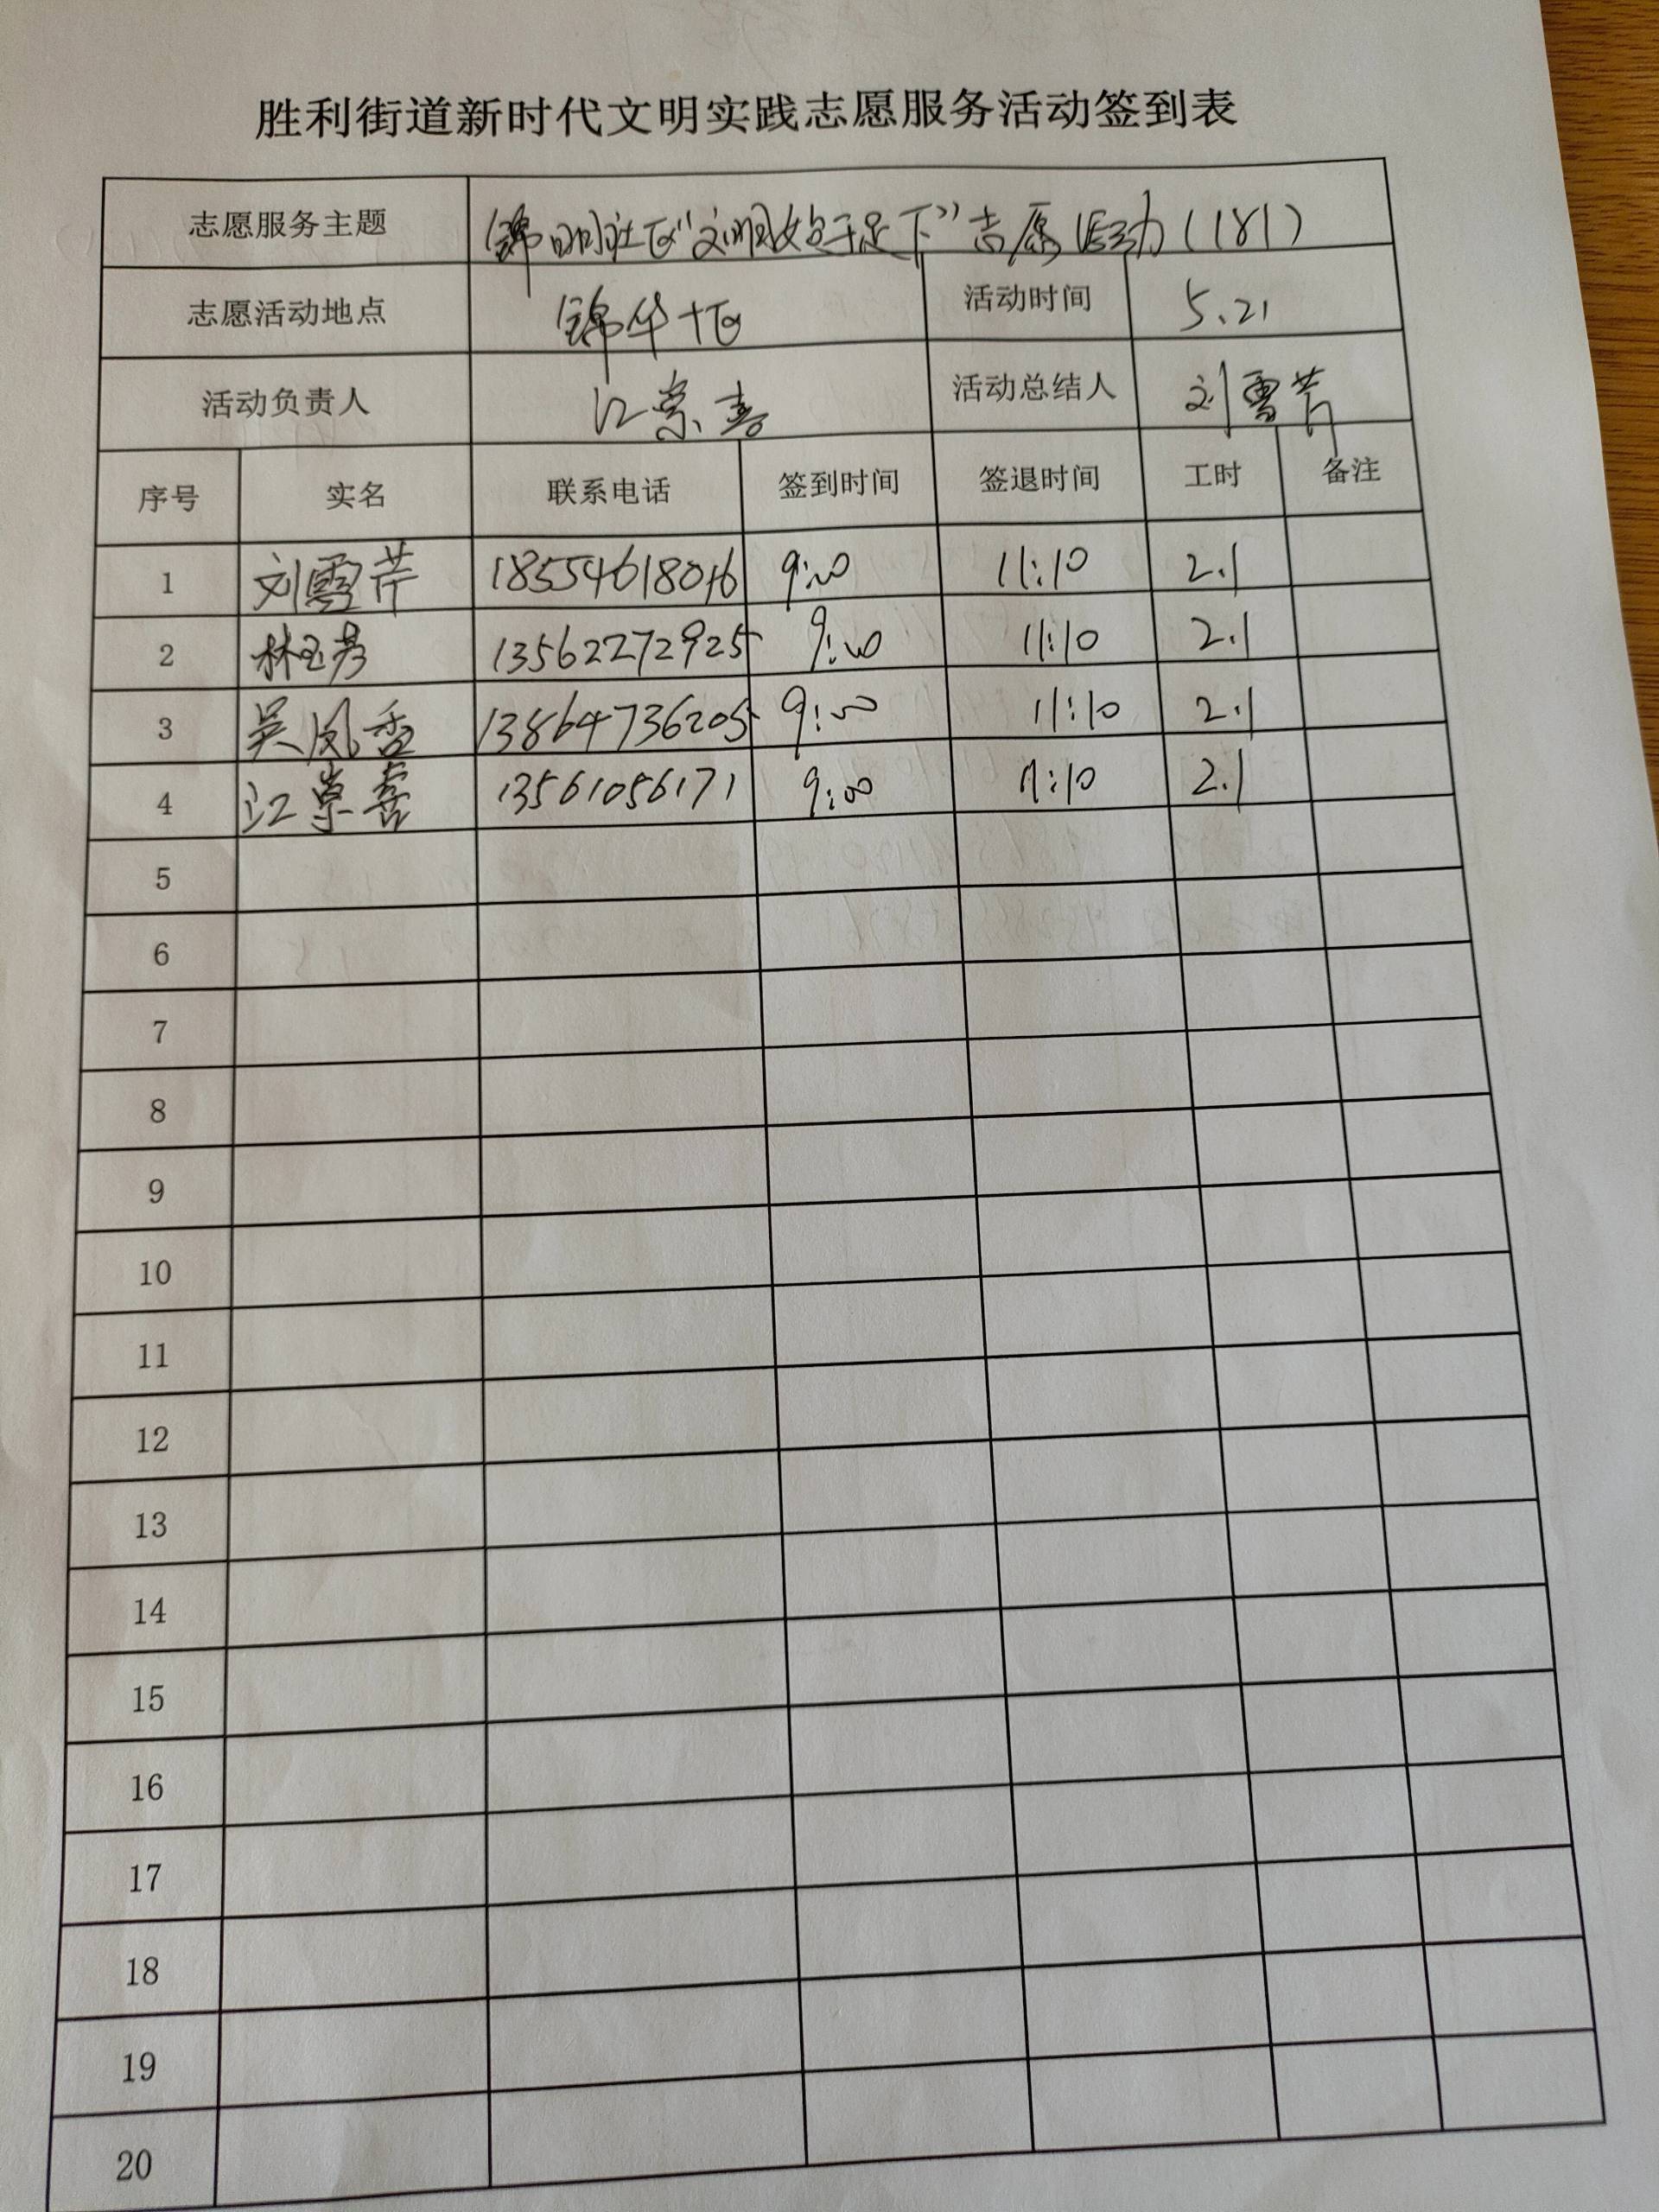 胜利街道新时代文明实践志愿服务活动签到表
志愿服务主题 锦明社区“文明始于足下”志愿活动(181)
志愿活动地点 锦华十区 活动时间 5.21
活动负责人 江崇喜 活动总结人 刘雪芹
序号 实名 联系电话 签到时间 签退时间 工时 备注
1 刘雪芹 9:00 11:10 2.1
2 13562272925 9:00 11:10 2.1
3 吴凤香 13864736205 9:00 11:10 2.1
4 江崇喜 13561056171 9:00 11:10 2.1
5
6
7
8
9
10
11
12
13
14
15
16
17
18
19
20